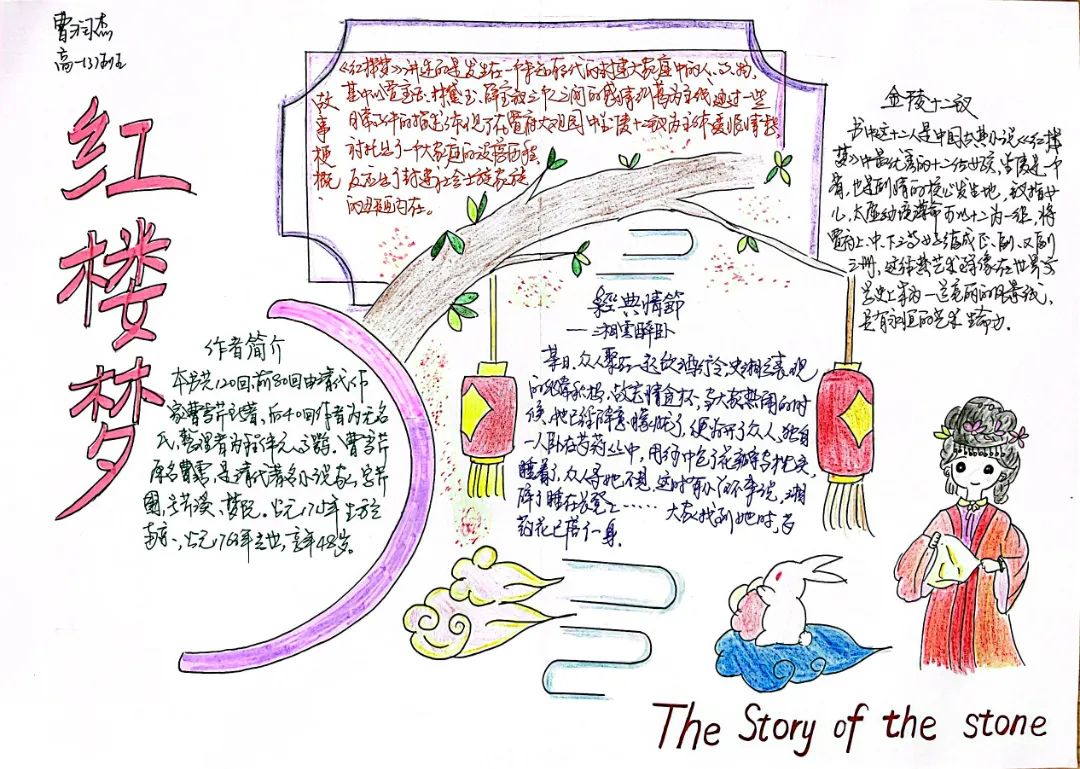 曹润杰
高一(3)班
红楼梦
故事梗概
《红楼梦》讲述的是发生在一个
封建大家庭中的人、事、物，
其中以贾宝玉、林黛玉、薛宝钗三个人之间的感情纠葛为主线通过一些
日常
体现了在贾府大观园中金陵十二钗为主体
一个大家庭的
历程，
反应出了封建社会
家族
金陵十二钗
书中这十二人是中国古典小说《红楼
梦》中最优秀的十二位女孩，金陵是一个
省，也是剧情的核心发生地，钗指女
儿，太虚幻境
十二为一组，将
贾府上、中、下三等女子编成正、副、又副
三册，这
艺术
在世界文
学史上成为一道亮丽的风景线，
具有永恒的艺术生命力.
作者简介
本书共120回,前80回由清代作
家曹雪芹
著,后40回作者为无名
氏,整理者为程伟元、高鹗。曹雪芹
原名曹霑,是清代著名小说家,字芹
圃,号芹溪、梦阮。公元1715年生于
南京,公元1763年去世,享年48岁。
經典情節
——湘雲醉卧
某日,众人聚在一起饮酒行令,史湘云表现
的
当大家热闹的时
候,她已经醉意朦胧了,便离开了众人,独自
一人卧在芍药丛中,用绢巾包了花瓣当枕头,
睡着了,众人寻她不见,这时有小丫环来说,湘
云
醉了睡在石凳上……大家找到她时,芍
药花已落了一身.
The Story of the stone